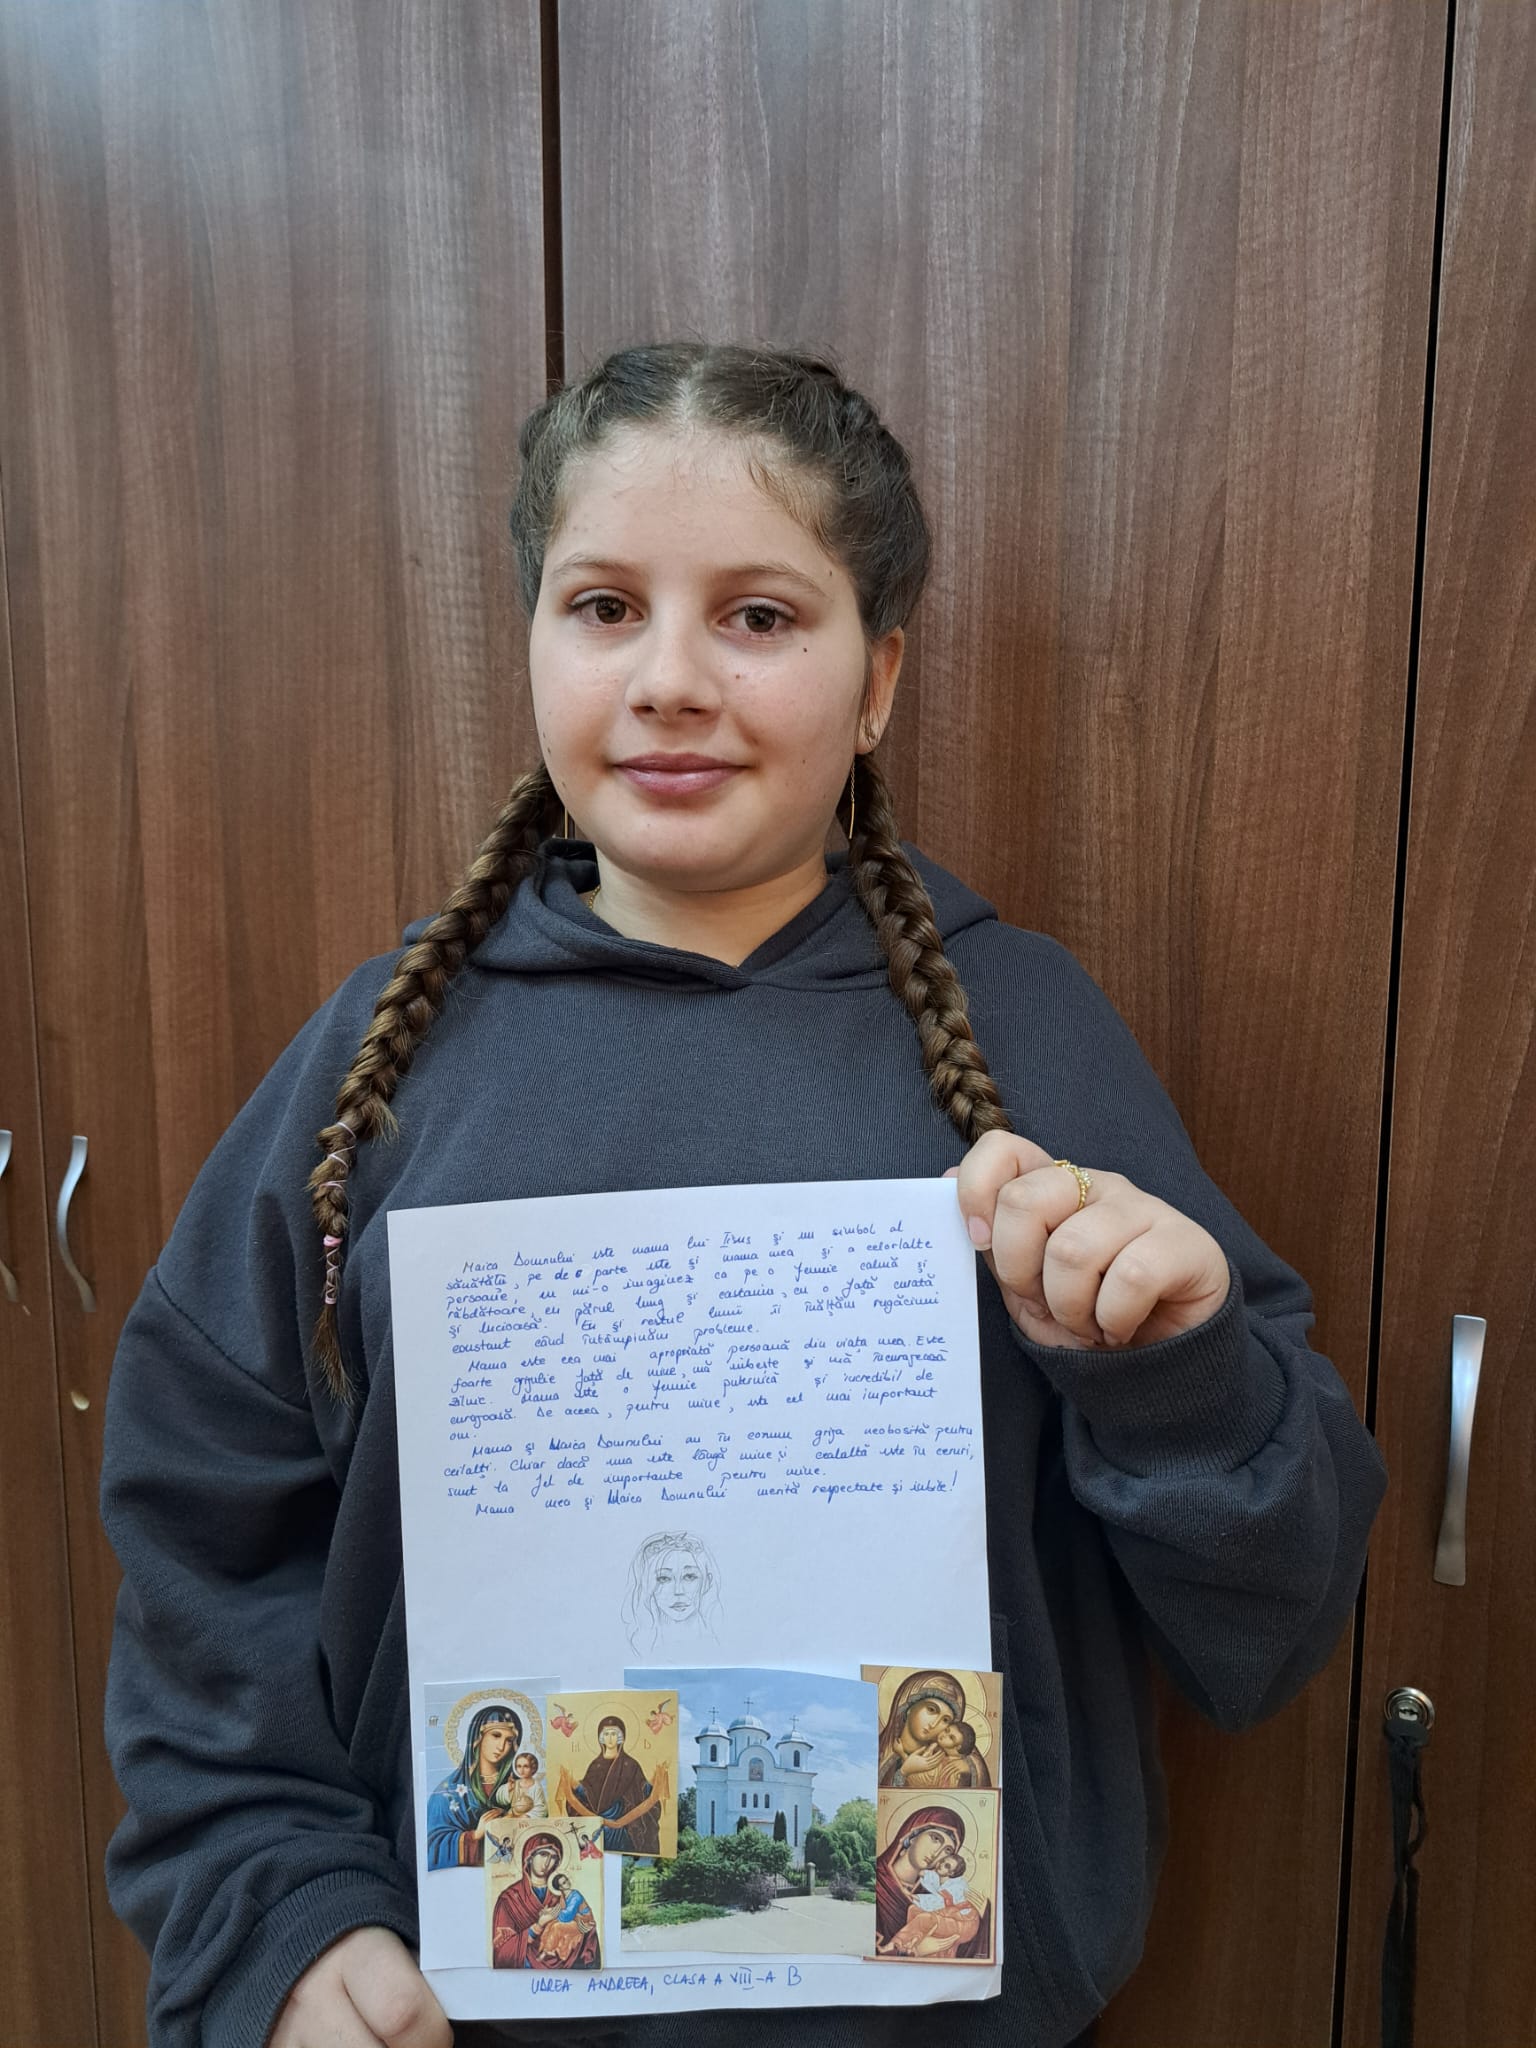 Maica Domnului este mama lui Iisus și un simbol al
sănătății, pe de o parte este și mama mea și a celorlalte
persoane, eu mi-o imaginez ca pe o femeie calmă și
răbdătoare, cu părul lung și castaniu, cu o față curată
și lucioasă. Eu și restul lumii îi înălțăm rugăciuni
constant când întâmpinăm probleme.
Mama este cea mai apropiată persoană din viața mea. Este
foarte grijulie față de mine, mă iubește și mă încurajează
zilnic. Mama este o femeie puternică și incredibil de
curajoasă. De aceea, pentru mine, este cel mai important
om.
Mama și Maica Domnului au în comun grija neobosită pentru
ceilalți. Chiar dacă una este lângă mine și cealaltă este în ceruri,
sunt la fel de importante pentru mine.
Mama mea și Maica Domnului merită respectate și iubite!
UDREA ANDREEA, CLASA A VIII-A B